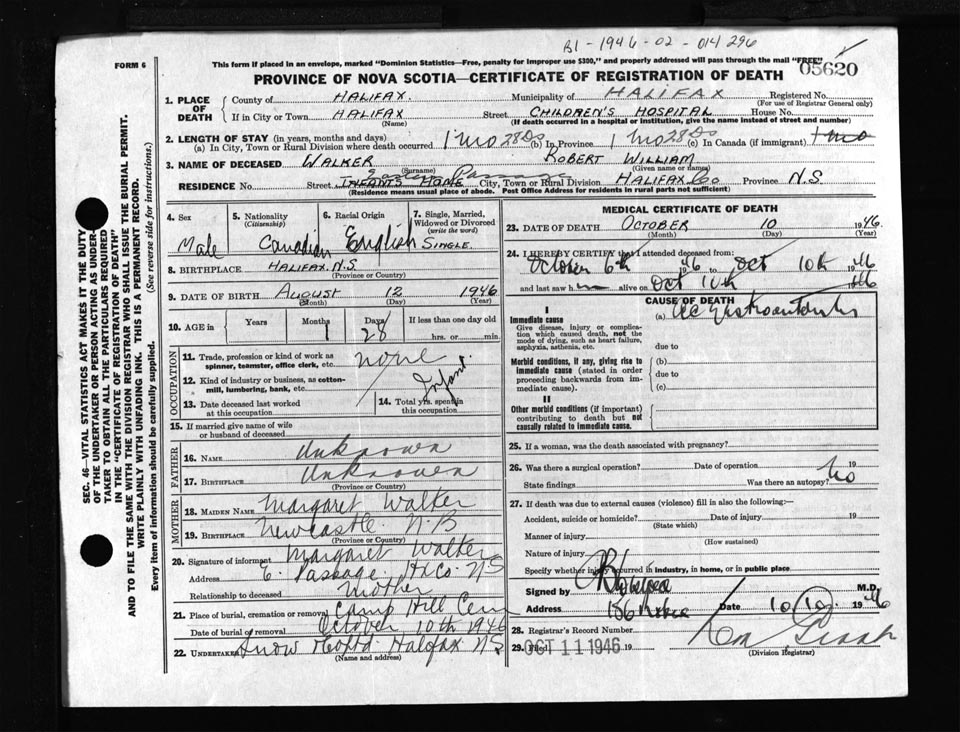 B1-1946-02-014296
FORM 6
This form if placed in an envelope, marked "Dominion Statistics—Free, penalty for improper use $300," and properly addressed will pass through the mail "FREE"
05620
PROVINCE OF NOVA SCOTIA—CERTIFICATE OF REGISTRATION OF DEATH
1. PLACE OF DEATH { County of HALIFAX. Municipality of HALIFAX Registered No.
(For use of Registrar General only)
If in City or Town HALIFAX Street CHILDREN'S HOSPITAL House No.
(Name) (If death occurred in a hospital or institution, give the name instead of street and number)
2. LENGTH OF STAY (in years, months and days)
(a) In City, Town or Rural Division where death occurred 1 mo 28 Ds (b) In Province 1 mo 28 Ds (c) In Canada (if immigrant) 1 mo
3. NAME OF DECEASED WALKER ROBERT WILLIAM
(Surname) (Given name or names)
Eastern Passage
RESIDENCE No. Street INFANTS HOME City, Town or Rural Division HALIFAX Co Province N.S.
(Residence means usual place of abode. Post Office Address for residents in rural parts not sufficient)
4. Sex Male
5. Nationality (Citizenship) Canadian
6. Racial Origin English
7. Single, Married, Widowed or Divorced (write the word) SINGLE.
8. BIRTHPLACE HALIFAX. N.S.
(Province or Country)
9. DATE OF BIRTH August 12 1946
(Month) (Day) (Year)
10. AGE in Years Months 1 Days 28 If less than one day old
hrs. or min.
OCCUPATION
11. Trade, profession or kind of work as spinner, teamster, office clerk, etc. none
12. Kind of industry or business, as cotton-mill, lumbering, bank, etc. Infant.
13. Date deceased last worked at this occupation
14. Total yrs. spent in this occupation
15. If married give name of wife or husband of deceased
FATHER
16. Name Unknown
17. Birthplace Unknown
(Province or Country)
MOTHER
18. Maiden Name Margaret Walker
19. Birthplace Newcastle. N.B
(Province or Country)
20. Signature of informant Margaret Walker
Address E. Passage. Hx Co. NS
Relationship to deceased Mother
21. Place of burial, cremation or removal Camp Hill Cem
Date of burial or removal October 10th 1946
22. Undertaker Snow & Co Ltd. Halifax NS
(Name and address)
MEDICAL CERTIFICATE OF DEATH
23. DATE OF DEATH OCTOBER 10 1946
(Month) (Day) (Year)
24. I HEREBY CERTIFY that I attended deceased from:
October 6th 1946 to Oct 10th 1946
and last saw him alive on Oct 10th 1946
CAUSE OF DEATH
I
Immediate cause
Give disease, injury or complication which caused death, not the mode of dying, such as heart failure, asphyxia, asthenia, etc.
(a)
due to
Morbid conditions, if any, giving rise to immediate cause (stated in order proceeding backwards from immediate cause).
(b)
due to
(c)
II
Other morbid conditions (if important) contributing to death but not causally related to immediate cause.
25. If a woman, was the death associated with pregnancy?
26. Was there a surgical operation? Date of operation 19
State findings Was there an autopsy? No
27. If death was due to external causes (violence) fill in also the following:—
Accident, suicide or homicide? Date of injury 19
(State which)
Manner of injury
(How sustained)
Nature of injury
Specify whether injury occurred in industry, in home, or in public place
Signed by M.D.
Address 186 Date 10/10. 1946
28. Registrar's Record Number
29. Filed OCT 11 1946 19
(Division Registrar)
SEC. 46—VITAL STATISTICS ACT MAKES IT THE DUTY
OF THE UNDERTAKER OR PERSON ACTING AS UNDER-
TAKER TO OBTAIN ALL THE PARTICULARS REQUIRED
IN THE "CERTIFICATE OF REGISTRATION OF DEATH"
AND TO FILE THE SAME WITH THE DIVISION REGISTRAR WHO SHALL ISSUE THE BURIAL PERMIT.
WRITE PLAINLY WITH UNFADING INK. THIS IS A PERMANENT RECORD.
Every item of information should be carefully supplied. (See reverse side for instructions.)